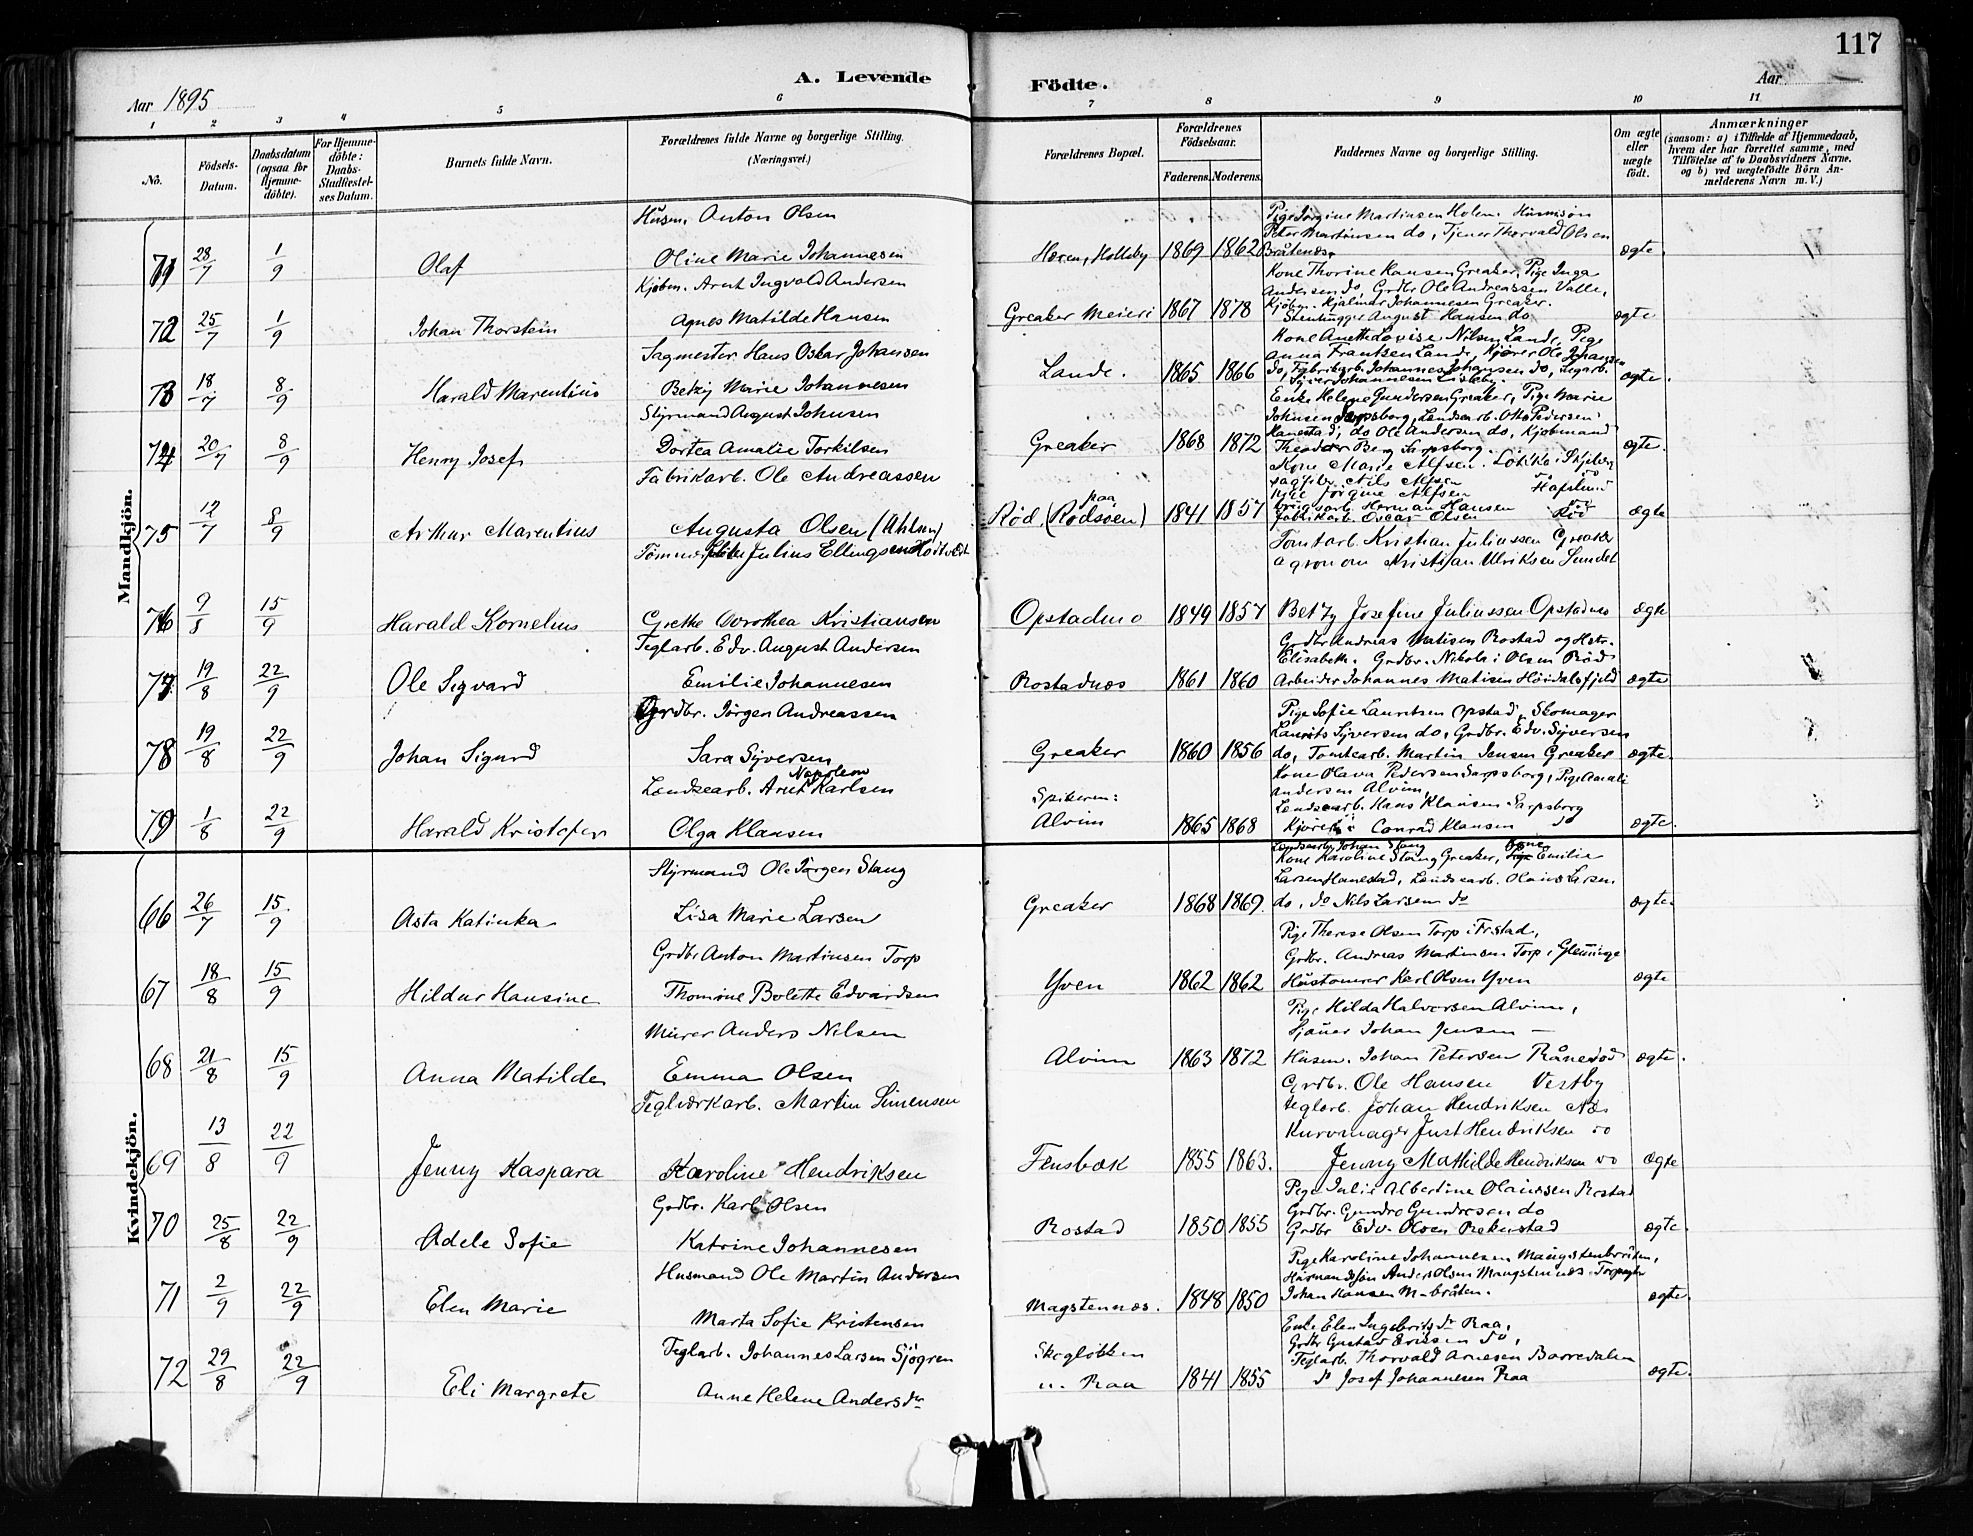 117
A. Levende Födte.
Aar 1895
Aar
1 2 3 4 5 6 7 8 9 10 11
No.
Födsels-Datum.
Daabsdatum (ogsaa for Hjemme-döbte).
For Hjemme-döbte: Daabs-Stadfæstel-ses Datum.
Barnets fulde Navn.
Forældrenes fulde Navne og borgerlige Stilling. (Næringsvei.)
Forældrenes Bopæl.
Forældrenes Födselsaar.
Faderens. Moderens.
Faddernes Navne og borgerlige Stilling.
Om ægte eller uægte födt.
Anmærkninger
(saasom: a) i Tilfælde af Hjemmedaab, hvem der har forrettet samme, med Tilföielse af to Daabsvidners Navne. og b) ved uægtefödte Börn An-melderens Navn m. V.)
Mandkjön.
Husm. Anton Olsen
Pige Jørgine Martinsen Holem Husmsøn
Peter Martinsen do, Tjener Thorvald Olsen
71 28/7 1/9 Olaf Oline Marie Johannesen Hæren, Holleby 1869 1862 Bråtenæs. ægte.
Kjøbm. Arnt Ingvald Andersen
Kone Thorine Hansen Greaker, Pige Inga
Andersen do, Grdbr Ole Andreassen Valle,
Kjøbm. Hjalmar Johannesen Greaker.
72 25/7 1/9 Johan Thorstein Agnes Matilde Hansen Greaker Meieri 1867 1878 Stenhugger August Hansen do ægte
Sagmester Hans Oskar Johansen
Kone Anette Lovise Nilsen Lande, Pige
Anna Frantsen Lande, Kjører Ole Johansen
73 18/7 8/9 Harald Marentius Betzy Marie Johannesen Lande. 1865 1866 do, Fabrikarb. Johannes Johansen do, ægte.
Syver Johannesen Lisleby.
Styrmand August Johnsen
Enke Helene Gundersen Greaker, Pige Marie
Johnsen Sarpsborg, Landsearb. Otto Pedersen
Hanestad, do Ole Andersen do, Kjøbmand
74 20/7 8/9 Henry Josef Dortea Amalie Torkilsen Greaker 1868 1872 Theodor Berg Sarpsborg. ægte.
Fabrikarb. Ole Andreassen
Kone Marie Alfsen. Løkka i Skjeberg
Sagfbr. Nils Alfsen
Pige Jørgine Alfsen Hafslund
75 12/7 8/9 Arthur Marentius Augusta Olsen (Uhlen) Rød, (Rødsøen) paa 1841 1857 Brugsarb Herman Hansen ægte
Fabrikarb. Oscar Olsen Rød
Julius Ellingsen
Tomtarb. Kristian Juliussen Greaker
Agronom Kristian Ulriksen Sundet
76 9/8 15/9 Harald Kornelius Grethe Dorothea Kristiansen Opstadmo 1849 1857 Betzy Josefine Juliussen Opstadmo ægte
Teglarb. Edv. August Andersen
Grdbr Andreas Matisen Rostad og Hstr.
Elisabeth. Grdbr. Nikolai Olsen Rød
77 19/8 22/9 Ole Sigvard Emilie Johannesen Rostadnæs 1861 1860 Arbeider Johannes Matisen Høidalsfjeld ægte
Grdbr. Jørgen Andreassen
Pige Sofie Lauritsen Opstad, Skomager
Laurits Syversen do, Grdbr. Edv. Syversen
78 19/8 22/9 Johan Sigurd Sara Syversen Greaker 1860 1856 do, Tomtearb. Martin Jensen Greaker ægte.
Landsearb. Arnt Napoleon Karlsen
Kone Olava Pedersen Sarpsborg, Pige Amali
Andersen Alvim,
Spikeren:
Landsearb. Hans Klausen Sarpsborg
79 1/8 22/9 Harald Kristofer Olga Klausen Alvim 1865 1868 Kjører Conrad Klausen do ægte.
Kvindekjön.
Landsearb. Johan Stang
Styrmand Ole Jørgen Stang
Kone Karoline Stang Greaker, Kone Emilie
Larsen Hanestad, Landsearb. Olaus Larsen
66 26/7 15/9 Asta Katinka Lisa Marie Larsen Greaker 1868 1869. do, do Nils Larsen do ægte.
Grdbr Anton Martinsen Torp
Pige Therese Olsen Torp i Frstad,
Grdbr. Andreas Martinsen Torp i Glemminge
67 18/8 15/9 Hildur Hansine Thomine Bolette Edvardsen Yven 1862 1862 Hustømrer Karl Olsen Yven ægte
Murer Anders Nilsen
Pige Hilda Halvorsen Alvim,
Sjauer Johan Jensen —
68 21/8 15/9 Anna Matilde Emma Olsen Alvim 1863 1872 Husm. Johan Petersen Rånesod ægte.
Teglverkarb. Martin Simensen
Grdbr. Ole Hansen Vestby
Teglarb. Johan Hendriksen Næs
Kurvmager Just Hendriksen do
69 13/8 22/9 Jenny Kaspara Karoline Hendriksen Fensbæk 1855 1863. Jenny Mathilde Hendriksen do ægte
Grdbr. Karl Olsen
Pige Julie Albertine Olaussen Rostad
Grdbr. Gundro Gundresen do
70 25/8 22/9 Adele Sofie Katrine Johannesen Rostad 1850 1855 Grdbr Edv. Olsen Rekustad ægte.
Husmand Ole Martin Andersen
Pige Karoline Johannesen Mangstenbråten,
Husmandssøn Anders Olsen Mangstennæs
71 2/9 22/9 Elen Marie Marta Sofie Kristensen Magstennæs. 1848 1850 Johan Hansen M-bråten. ægte.
Teglarb. Johannes Larsen Sjøgren
Enke Elen Ingebritsdr Raa,
Grdbr Gustav Eriksen do,
Skogløkken
Teglarb. Thorvald Arnesen Borredalen
72 29/8 22/9 Eli Margrete Anne Helene Andersdr u. Raa 1841 1855 do Josef Johannesen Raa ægte.